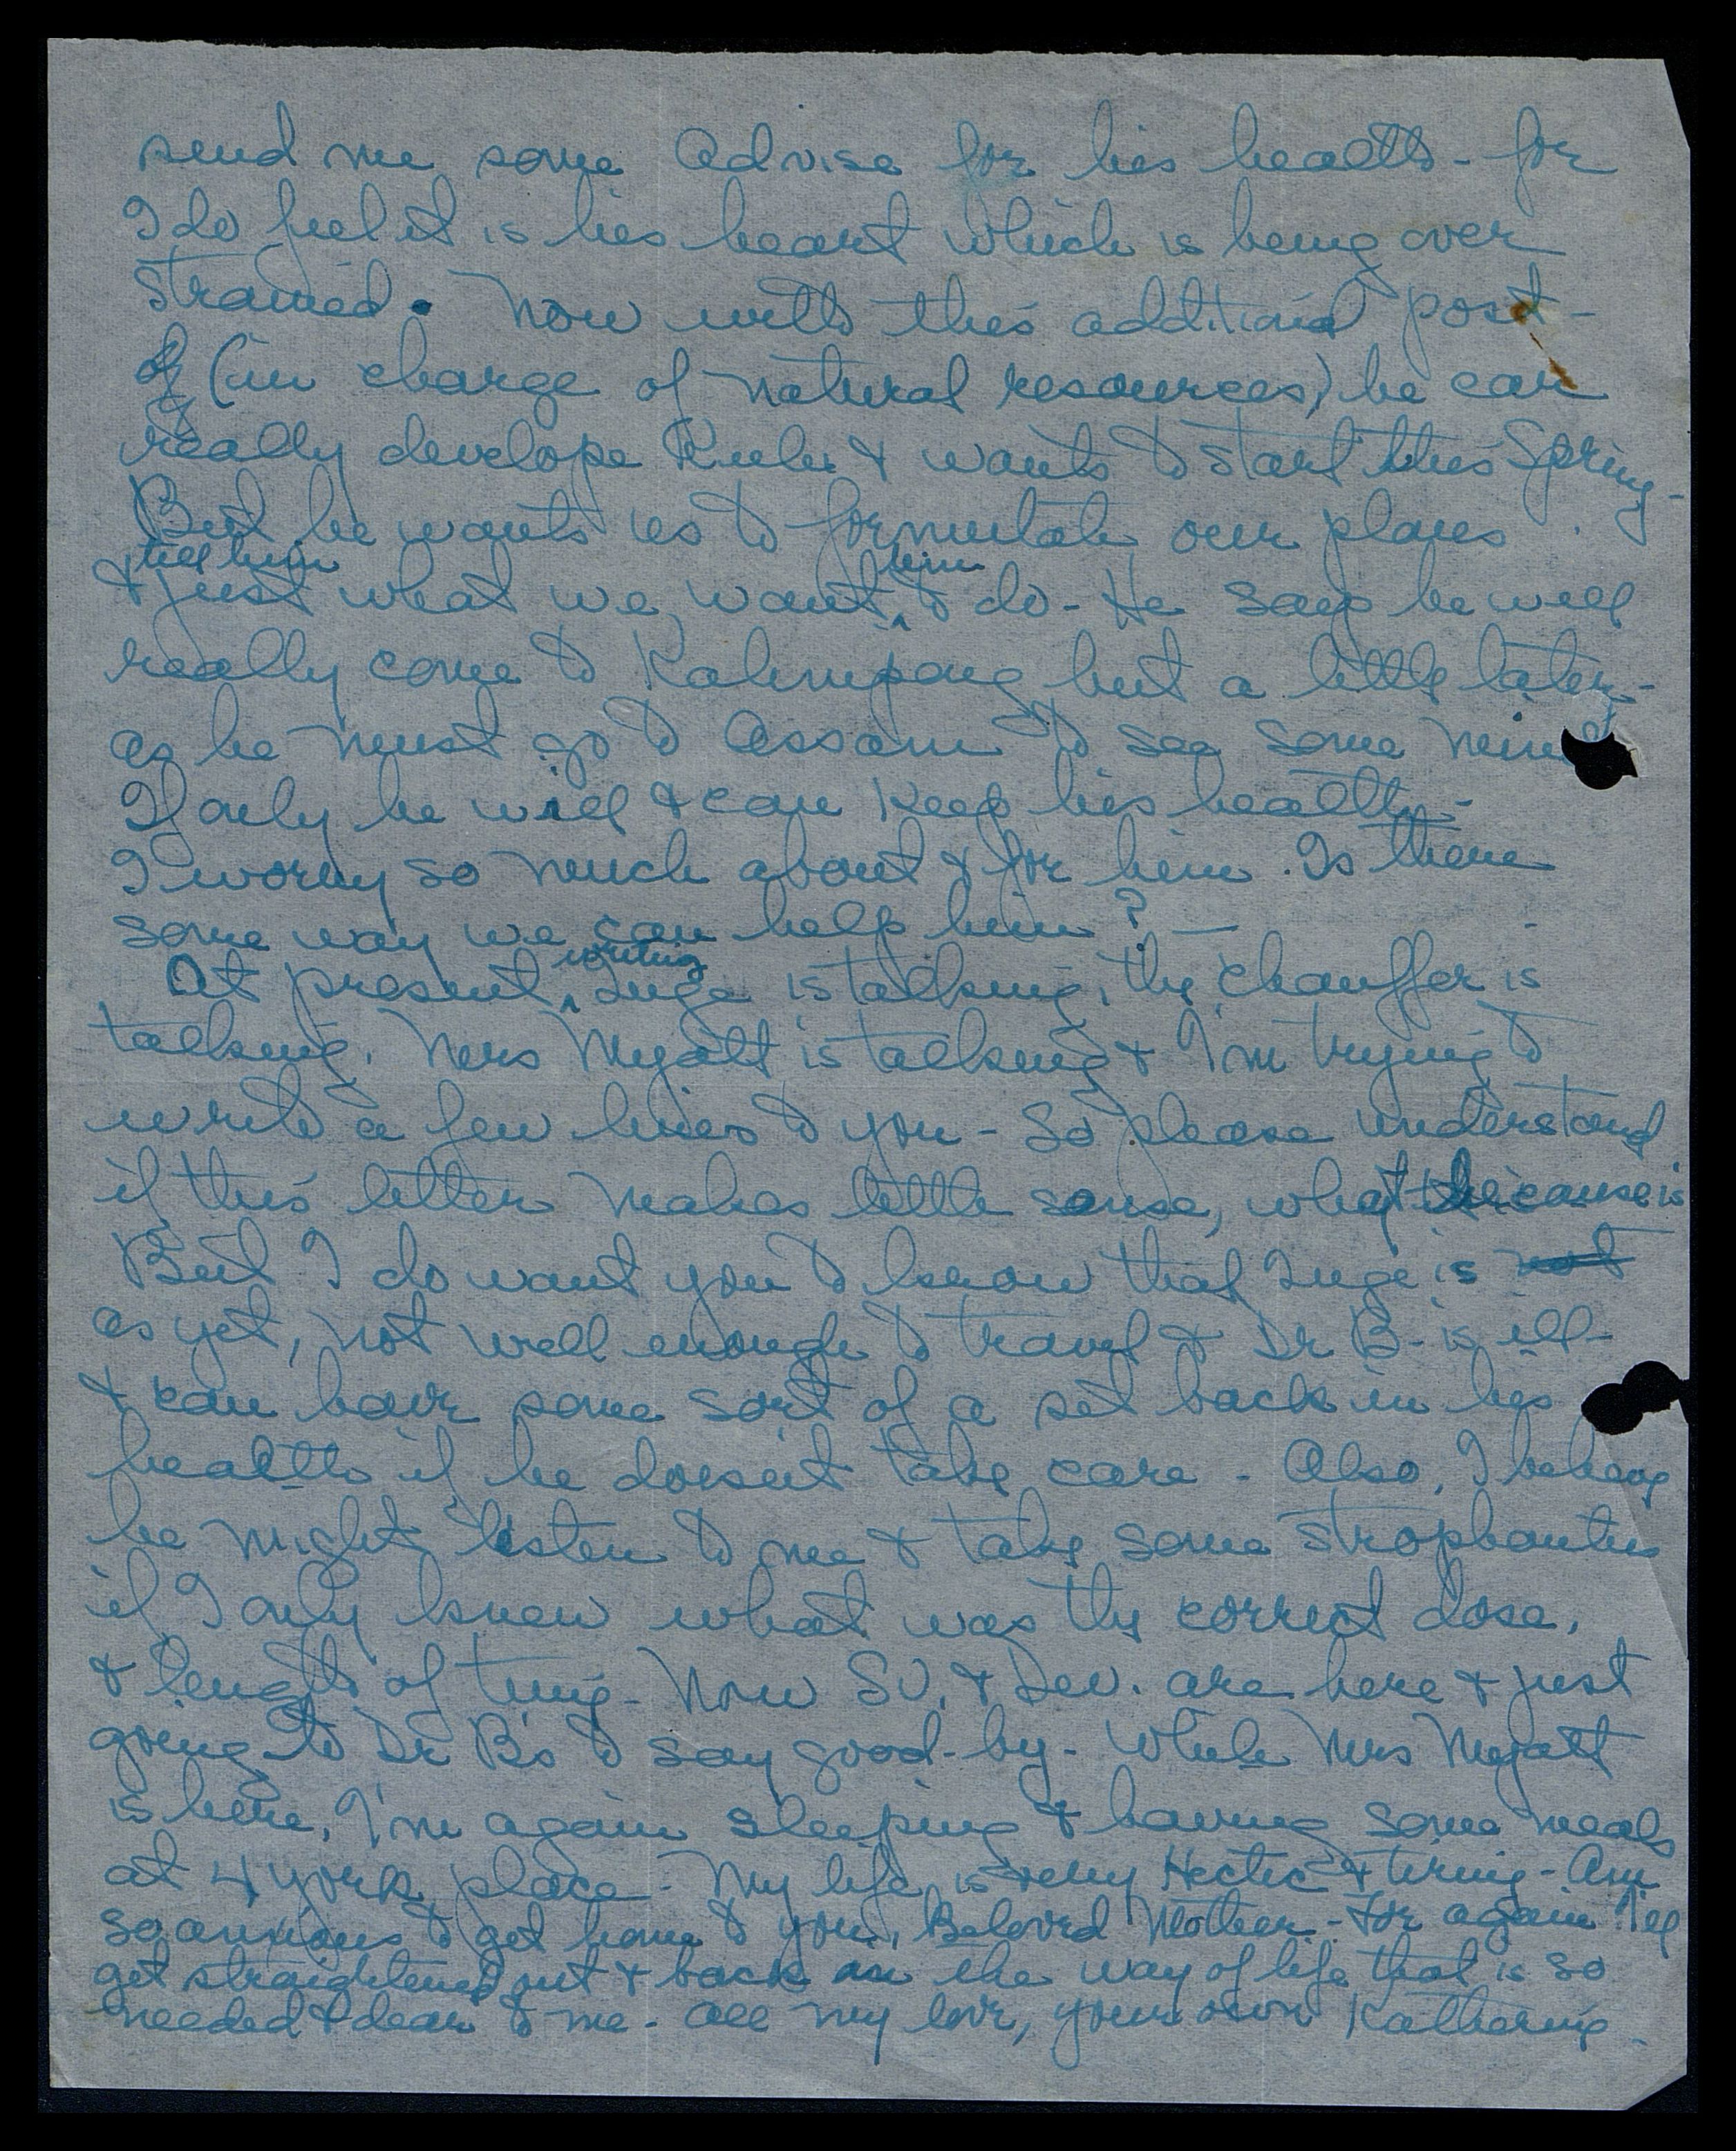 send me some advise for his health - for
I do feel it is his heart which is being over
strained. Now with this additional post -
of (in charge of natural resources) he can
really develope Kulu & wants to start this Spring -
But he wants us to formulate our plans
& tell him just what we want him to do - He says he will
really come to Kalimpong but a little later -
as he must go to Assam to see some
If only he will & can keep his health -
I worry so much about & for him. Is there
some way we can help him? -
At present, writing Inge is talking, the chauffer is
talking, Mrs Myatt is talking & I'm trying to
write a few lines to you - So please understand
if this letter makes little sense, what the cause is
But I do want you to know that Inge is not
as yet, not well enough to travel & Dr B - is ill -
& can have some sort of a set back in his
health if he doesn't take care - Also, I believe
he might listen to me & take some strophantus
if I only knew what was the correct dose,
& length of time - Now SV. & Dev. are here & just
going to Dr B's to say good-by - While Mrs Myatt
is here, I'm again sleeping & having some meals
at 4 York place - My life is very Hectic & tiring - Am
so anxious to get home to you, Beloved Mother - For again I'll
get straightened out & back on the way of life that is so
needed & dear to me - All my love, your own Katherine -